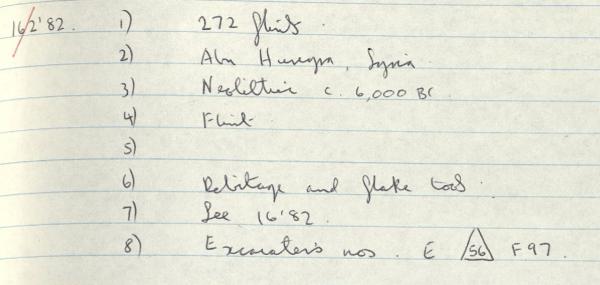 162'82. 1) 272 flints.
2) Abu Hureyra, Syria
3) Neolithic c. 6,000 BC.
4) Flint
5)
6) Debitage and flake tools.
7) See 16'82.
8) Excavater's nos. E 56 F97.